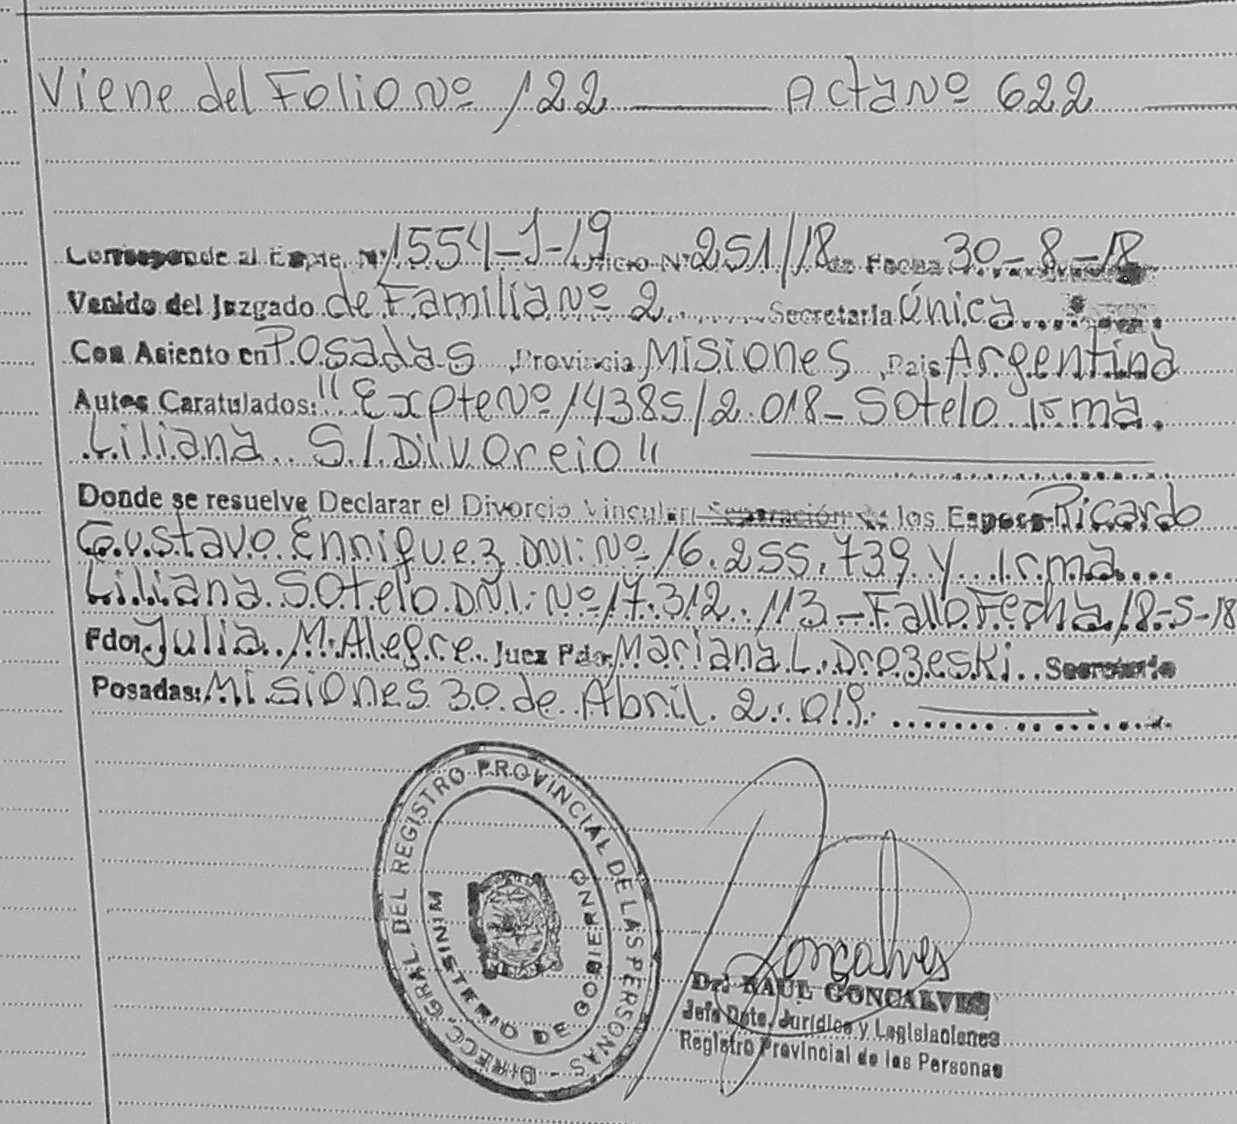 Viene del Folio Nº 122 Acta Nº 622
Corresponde al Expte. Nº 1554-J-19 Oficio Nº 251/18 de Fecha 30-8-18
Venido del Juzgado de Familia Nº 2 Secretaría Única
Con Asiento en Posadas, Provincia Misiones, País Argentina
Autos Caratulados: "Expte Nº 14385/2.018- Sotelo Irma
Liliana S/Divorcio"
Donde se resuelve Declarar el Divorcio Vincular, Separación de los Esposos Ricardo
Gustavo Enriquez DNI: Nº 16.255.739 Y Irma
Liliana Sotelo DNI: Nº 17.312.113 - Fallo Fecha 18-5-18
Fdo: Julia M. Alegre Juez Fdo: Mariana L. Drozeski Secretario
Posadas: Misiones 30 de Abril 2.019.
DIRECC. GRAL. DEL REGISTRO PROVINCIAL DE LAS PERSONAS
MINISTERIO DE GOBIERNO
Goncalves
Dr. RAUL GONCALVES
Jefe Dpto. Jurídico y Legislaciones
Registro Provincial de las Personas